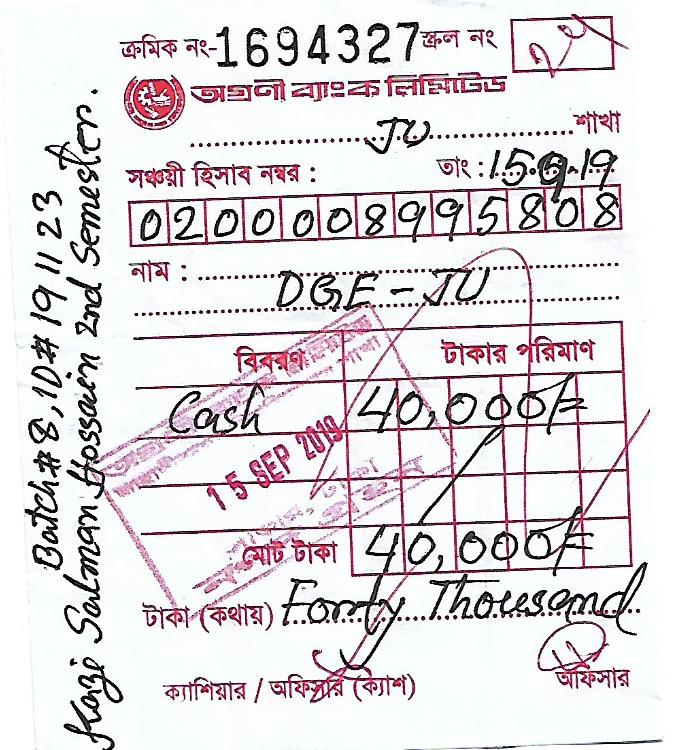 ক্রমিক নং- 1694327 স্ক্রল নং
অগ্রণী ব্যাংক লিমিটেড
JU শাখা
সঞ্চয়ী হিসাব নম্বর : তাং : 15.9.19
0200008995808
নাম :
DGE - JU
বিবরণ টাকার পরিমাণ
Cash 40,000/=
15 SEP 2019
মোট টাকা 40,000/=
টাকা (কথায়) Forty Thousand
ক্যাশিয়ার / অফিসার (ক্যাশ) অফিসার
Batch # 8, ID # 191123
Kazi Salman Hossain 2nd Semester.